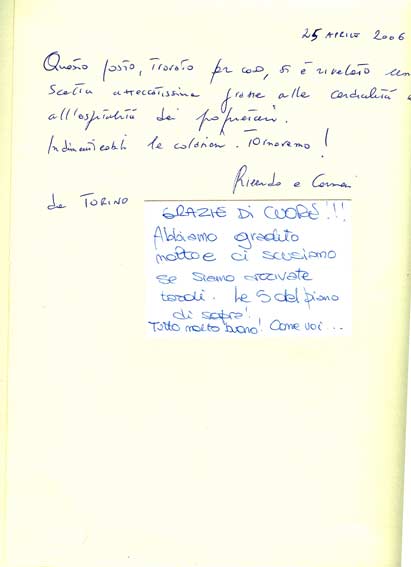 25 APRILE 2006
Questo posto, trovato per caso, si è rivelato una
scelta azzeccatissima grazie alla cordialità e
all'ospitalità dei proprietari.
Indimenticabili le colazioni. Torneremo!
Riccardo e
da TORINO
GRAZIE DI CUORE!!!
Abbiamo gradito
molto e ci scusiamo
se siamo arrivate
tardi. Le 5 del piano
di sopra!
Tutto molto buono! Come voi ...